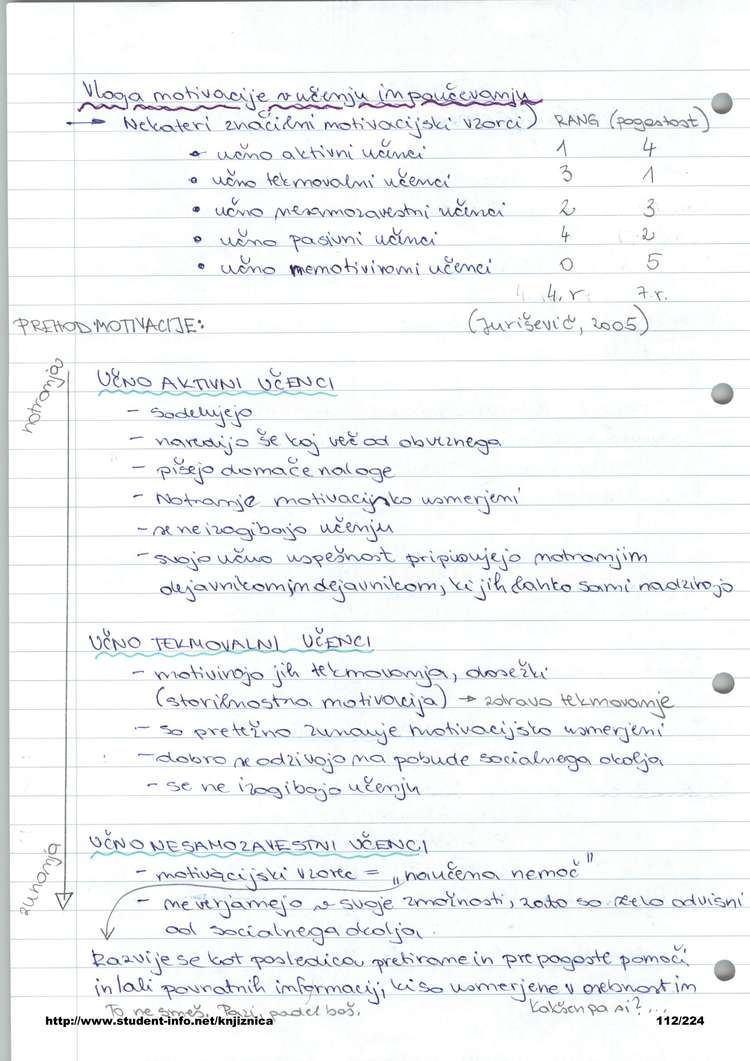 Vloga motivacije v učenju in poučevanju
→ Nekateri značilni motivacijski vzorci) RANG (pogostost)
• učno aktivni učenci 1 4
• učno tekmovalni učenci 3 1
• učno nesamozavestni učenci 2 3
• učno pasivni učenci 4 2
• učno nemotivirani učenci 0 5
4. r. 7. r.
PREHOD MOTIVACIJE: (Jurišević, 2005)
notranja
UČNO AKTIVNI UČENCI
- sodelujejo
- naredijo še kaj več od obveznega
- pišejo domače naloge
- Notranje motivacijsko usmerjeni
- se ne izogibajo učenju
- svojo učno uspešnost pripisujejo notranjim
dejavnikom in dejavnikom, ki jih lahko sami nadzirajo
UČNO TEKMOVALNI UČENCI
- motivirajo jih tekmovanja, dosežki
(storilnostna motivacija) → zdravo tekmovanje
- so pretežno zunanje motivacijsko usmerjeni
- dobro se odzivajo na pobude socialnega okolja
- se ne izogibajo učenju
zunanja
UČNO NESAMOZAVESTNI UČENCI
- motivacijski vzorec = „naučena nemoč"
- ne verjamejo v svoje zmožnosti, zato so zelo odvisni
od socialnega okolja.
Razvije se kot posledica pretirane in prepogoste pomoči
in/ali povratnih informacij, ki so usmerjene v osebnost in
To ne smeš. Pazi, padel boš. Kakšen pa si?...
http://www.student-info.net/knjiznica 112/224